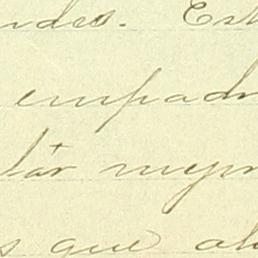 ndes. Est
empadr
lár mejor
s que al